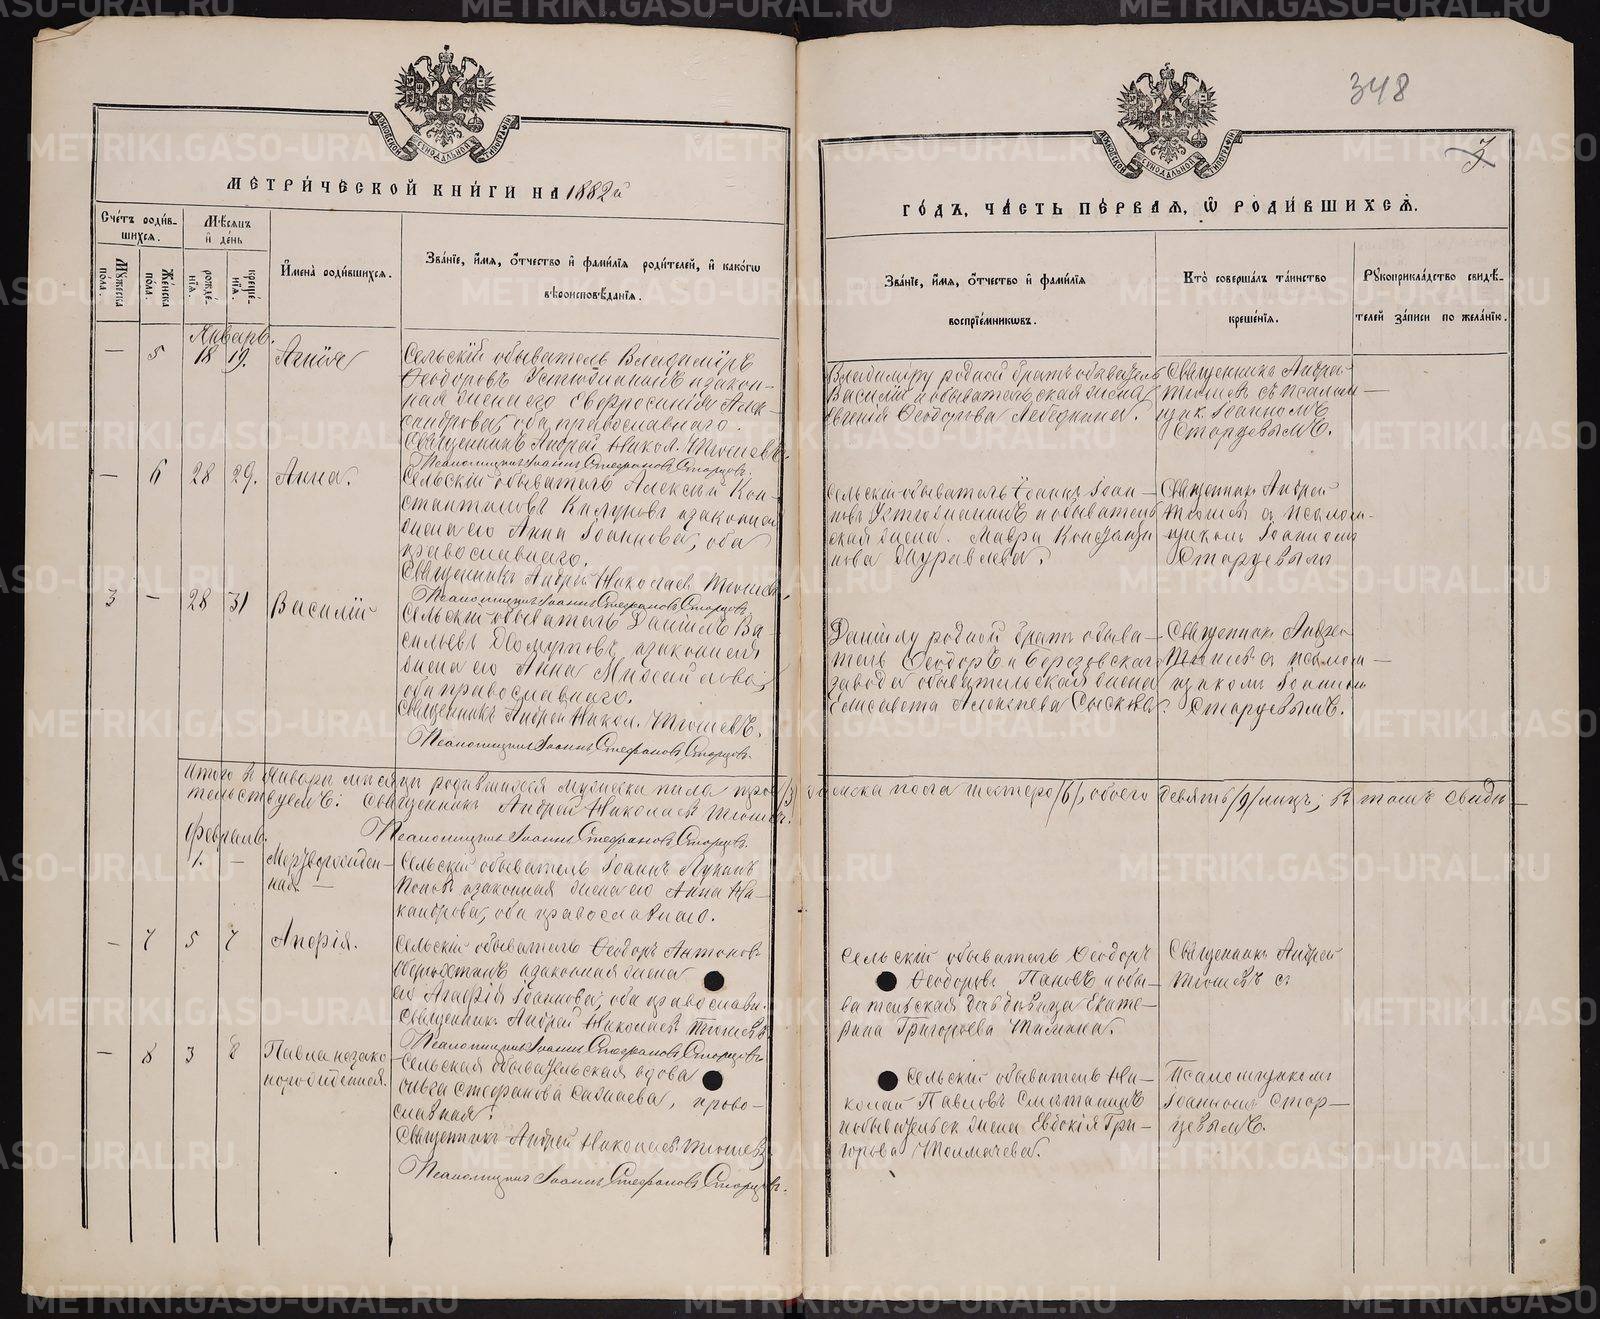 348
7
МЕТРИ́ЧЕСКОЙ КНИ́ГИ НА 1882й
ГО́ДЪ, ЧА́СТЬ ПЕ́РВАЯ, Ѽ РОДИ́ВШИХСЯ.
Счéтъ роди́в-
шихся.
Мѣ́сяцъ
и де́нь
Му́жеска по́ла.
Же́нска по́ла.
рожде́-
нїя.
креще́-
нїя.
И҆мена̀ роди́вшихся.
Зва́нїе, и҆́мя, ѻ҆́тчество и҆ фами́лїя роди́телей, и҆ како́гѡ
вѣроисповѣ́данїя.
Зва́нїе, и҆́мя, ѻ҆́тчество и҆ фами́лїя
воспрїе́мникѡвъ.
Кто̀ соверша́лъ та́инство
креще́нїя.
Рꙋкоприкла́дство свидѣ́-
телей за́писи по жела́нїю.
Январь.
— 5 18 19. Агнія
Сельскій обыватель Владиміръ
Ѳеодоровъ Устюжанинъ и закон-
ная жена его Евфросинія Алек-
сандрова, оба православнаго.
Священникъ Андрей Никол. Тюшевъ.
Псаломщикъ Іоаннъ Стефановъ Старцовъ.
Владиміру родной братъ обыватель
Василій и обывательская жена
Евгенія Ѳеодорова Лебедкина.
Священникъ Андрей
Тюшевъ съ псалом-
щик. Іоанномъ
Старцевымъ.
— 6 28 29. Анна.
Сельскій обыватель Алексѣй Кон-
стантиновъ и законная
жена его Анна Іоаннова, оба
православнаго.
Священникъ Андрей Николаев. Тюшевъ.
Псаломщикъ Іоаннъ Стефановъ Старцовъ.
Сельскій обыватель Іоаннъ Іоан-
новъ Устюжанинъ и обыватель-
ская жена Мавра
нова Журавлева.
Священникъ Андрей
Тюшевъ съ псалом-
щикомъ Іоанномъ
Старцевымъ
3 — 28 31 Василій
Сельскій обыватель Даніилъ Ва-
сильевъ и законная
жена его Анна Михайлова,
оба православнаго.
Священникъ Андрей Никол. Тюшевъ.
Псаломщикъ Іоаннъ Стефановъ Старцовъ.
Даніилу родной братъ обыва-
тель Ѳеодоръ и Березовскаго
завода обывательская жена
Елисавета Алексѣева
Священникъ Андрей
Тюшевъ съ псалом-
щикомъ Іоанномъ
Старцевымъ.
Итого въ Январѣ мѣсяцѣ родившихся мужеска пола трое /3/ женска пола шестеро /6/, обоего девять /9/ лицъ; въ томъ свидѣ-
тельствуемъ: Священникъ Андрей Николаевъ Тюшевъ.
Псаломщикъ Іоаннъ Стефановъ Старцовъ.
Февраль.
1. — Мертворожден-
ная —
Сельскій обыватель Іоаннъ
Поповъ и законная жена его Анна Ни-
кандрова, оба православнаго.
— 7 5 7 Анфія.
Сельскій обыватель Ѳеодоръ Антоновъ
и законная жена
его Агафія Іоаннова, оба православн.
Священникъ Андрей Николаевъ Тюшевъ.
Псаломщикъ Іоаннъ Стефановъ Старцовъ.
Сельскій обыватель Ѳеодоръ
Ѳеодоровъ Пановъ и обы-
вательская дочь дѣвица Екате-
рина Григорьева
Священникъ Андрей
Тюшевъ съ
— 8 3 8 Павла незако-
норожденная.
Сельская обывательская вдова
Ольга Стефанова право-
славная.
Священникъ Андрей Николаевъ Тюшевъ
Псаломщикъ Іоаннъ Стефановъ Старцовъ.
Сельскій обыватель Ни-
колай Павловъ Сметанинъ
и обывательск. жена Евдокія Гри-
горьева Толмачева.
Псаломщикомъ
Іоанномъ Стар-
цевымъ.
METRIKI.GASO-URAL.RU